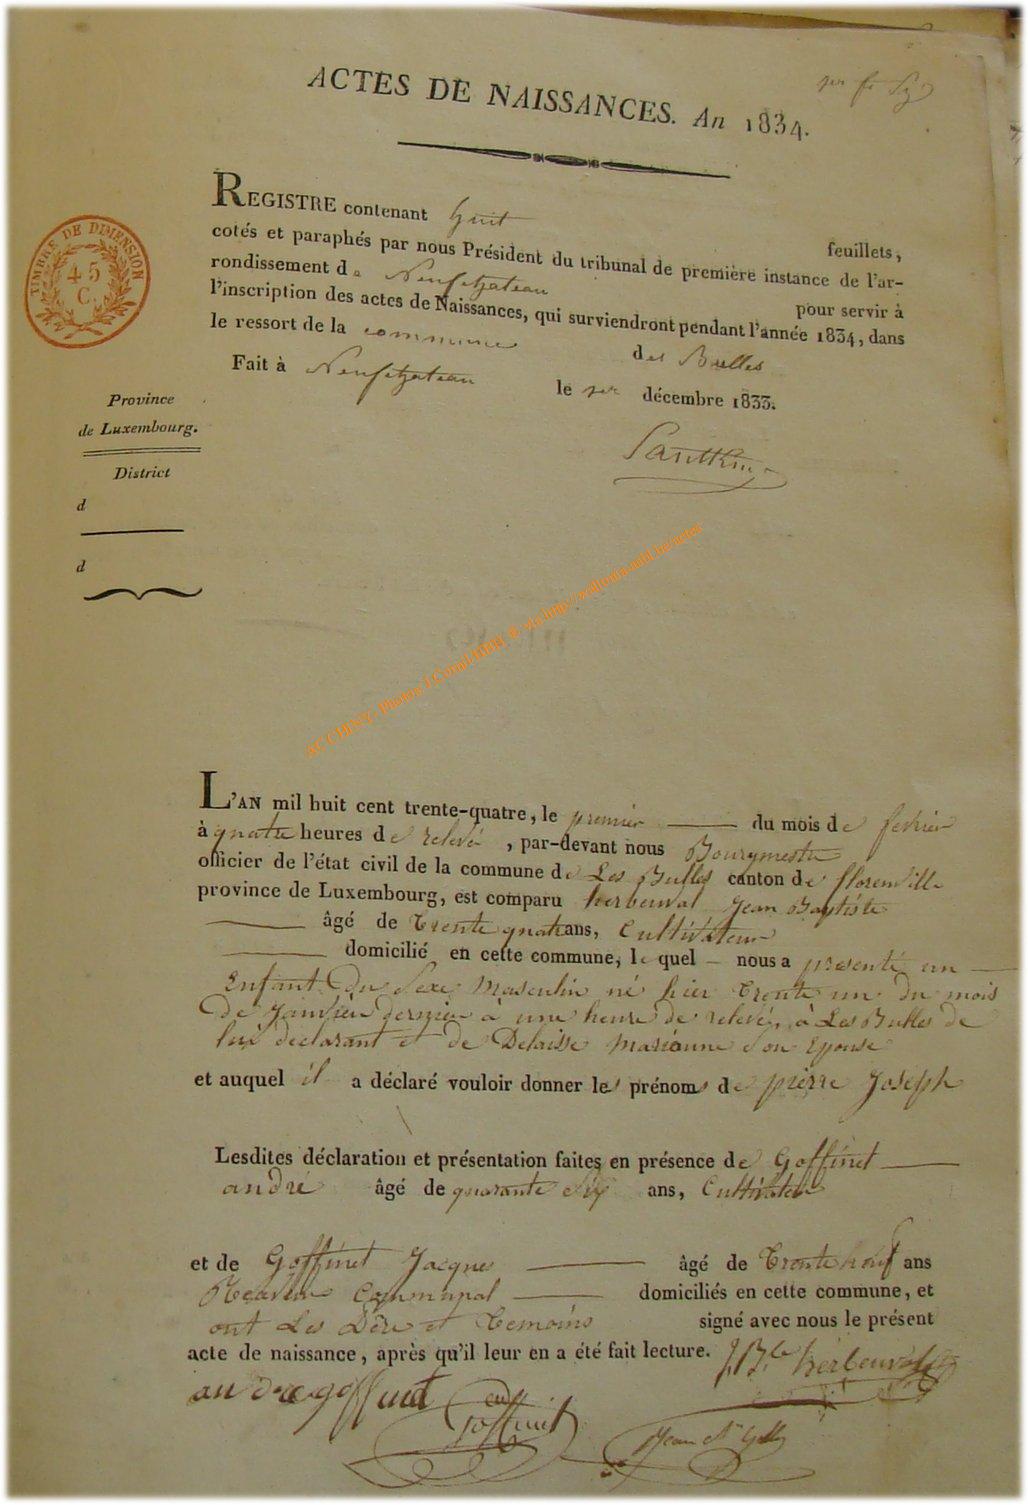 per f. Sy
ACTES DE NAISSANCES. An 1834.
TIMBRE DE DIMENSION
45
C.
REGISTRE contenant huit feuillets,
cotés et paraphés par nous Président du tribunal de première instance de l'ar-
rondissement de Neufchateau pour servir à
l'inscription des actes de Naissances, qui surviendront pendant l'année 1834, dans
le ressort de la commune des Bulles
Fait à Neufchateau le 1er décembre 1833.
Province
de Luxembourg.
District
d
d
AC CHINY- Photos
L'AN mil huit cent trente-quatre, le premier du mois de fevrier
à quatre heures de relevé, par-devant nous Bourgmestre
officier de l'état civil de la commune de Les Bulles canton de florenville
province de Luxembourg, est comparu herbeuval Jean Baptiste
âgé de Trente quatre ans, Cultivateur
domicilié en cette commune, le quel nous a presenté un
Enfant Du Sexe Masculin né hier Trente un du mois
De Janvier dernier à une heure de relevé, à Les Bulles de
lui declarant et de Delaisse marianne Son Epouse
et auquel il a déclaré vouloir donner les prénoms de pierre Joseph
Lesdites déclaration et présentation faites en présence de Goffinet
andre âgé de quarante Six ans, Cultivateur
et de Goffinet Jacques âgé de Trente neuf ans
Receveur Communal domiciliés en cette commune, et
ont Les Père et Temoins signé avec nous le présent
acte de naissance, après qu'il leur en a été fait lecture. J. Bte herbeuval
andre goffinet Goffinet